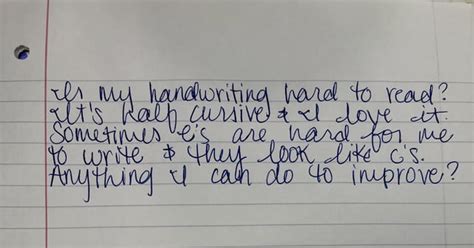 Is my handwriting hard to read?
It's half cursive & I love it.
Sometimes e's are hard for me
to write & they look like c's.
Anything I can do to improve?